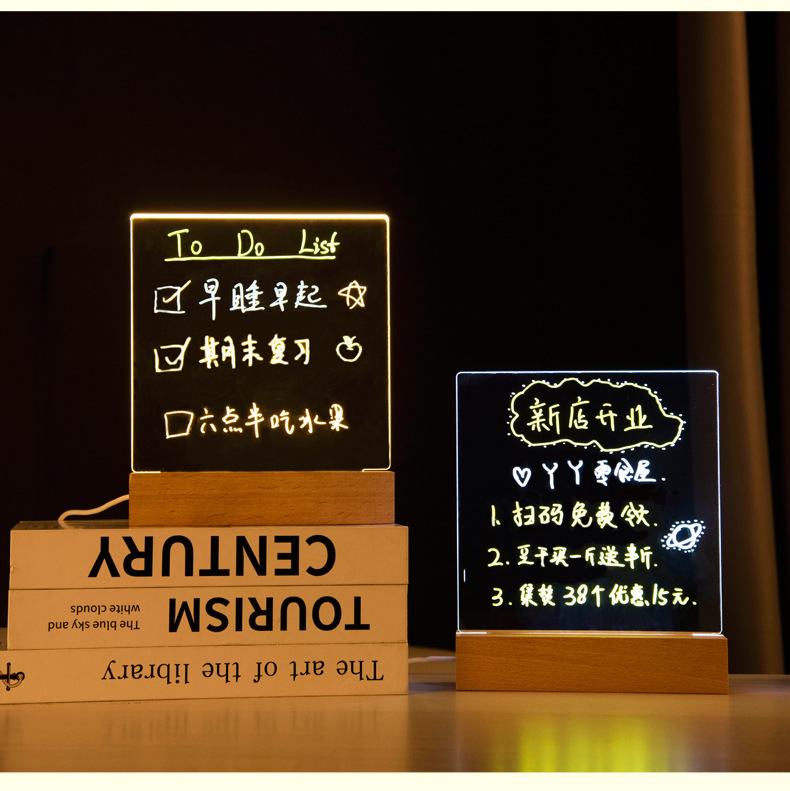 To Do List
早睡早起
期末复习
六点半吃水果
新店开业
丫丫零食屋.
1. 扫码免费领.
2. 豆干买一斤送半斤.
3. 集赞38个优惠15元.
CENTURY
TOURISM
The blue sky and
white clouds
The art of the library